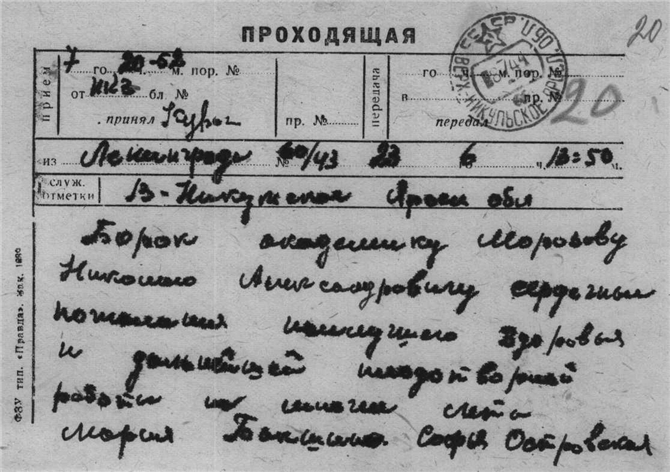 ПРОХОДЯЩАЯ
20
прием
7 го 20-52 ч. м. пор. №
от НКЗ бл. №
принял
пр. №
передача
го ч. м. пор. №
в пр. №
передал
20
из Ленинграда № 60/43 23 6 ч. 13=50 м.
служ. отметки В-Никульская Яросл обл
Борок академику Морозову
Николаю Александровичу сердечные
пожелания наилучшего здоровья
и дальнейшей плодотворной
работы на многие лета
Мария Софья Островская
ФЗУ тип. «Правда». Зак. 1880